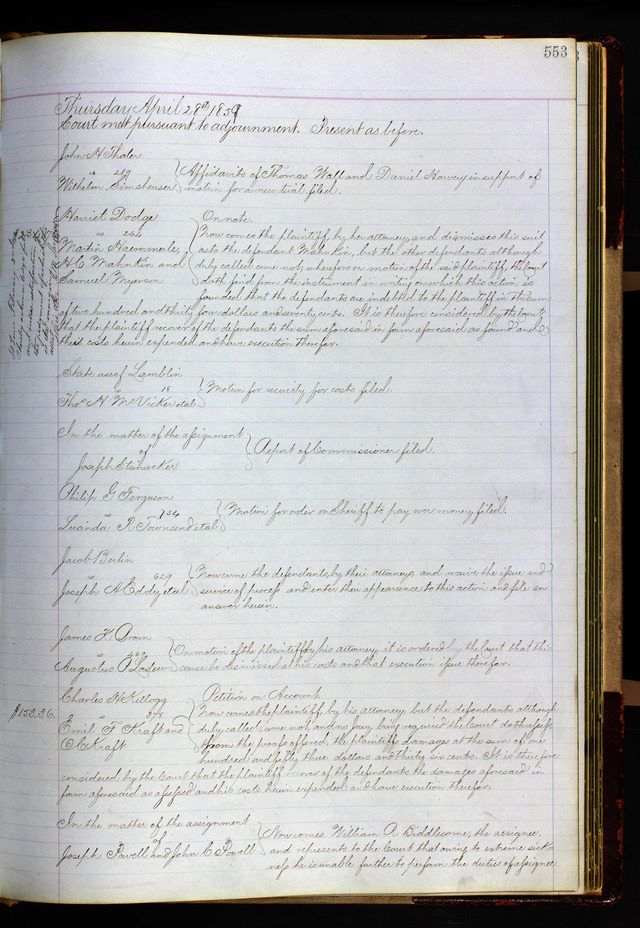 553
Thursday April 28th 1859
Court met pursuant to adjournment. Present as before.
John H Thaler
vs 289
Wilhelm
Affidavits of Thomas Wall and Daniel in support of
motion for a new trial filed.
Harriet Dodge
vs 265
Martin Haemmerle,
H C Mahnkin and
Samuel Myerson
On note
Now comes the plaintiff, by her attorney, and dismisses this suit
as to the defendant Mahnkin, but the other defendants although
duly called come not, wherefore on motion of the said plaintiff, the Court
doth find from the instrument in writing on which this action is
founded that the defendants are indebted to the plaintiff in the sum
of two hundred and thirty four dollars and seventy cents. It is therefore considered by the Court
that the plaintiff recover of the defendants the sum aforesaid in form aforesaid as found and
their costs herein expended and have execution therefor.
State use of Lamblin
vs 18
Thos. H McVicker et al
Motion for security for costs filed.
In the matter of the assignment
of
Joseph
Report of Commissioner filed.
Philip G Ferguson
vs 736
Lucinda R Townsend et al
Motion for order on Sheriff to pay over money, filed.
Jacob Berlin
vs 629
Joseph A Eddy et al
Now come the defendants, by their attorneys, and waive the issue and
service of process and enter their appearance to this action and file an
answer herein.
James K Brown
vs
Augustus P
On motion of the plaintiff by his attorney it is ordered by the Court that this
cause be dismissed at his costs and that execution issue therefor.
$153.36.
Charles H Kellogg
vs
Emil F Kraft and
C Kraft
Petition on Account.
Now comes the plaintiff, by his attorney, but the defendants although
duly called, come not, and no jury being required the Court doth assess
from the proofs offered, the plaintiffs damages at the sum of one
hundred and fifty three dollars and thirty six cents. It is therefore
considered by the Court that the plaintiff recover of the defendants the damages aforesaid in
form aforesaid as assessed and his costs herein expended and have execution therefor.
In the matter of the assignment
of
Joseph Powell and John C Powell
Now comes William A Biddlesome, the assignee,
and represents to the Court that owing to extreme sick-
ness he is unable further to perform the duties of assignee